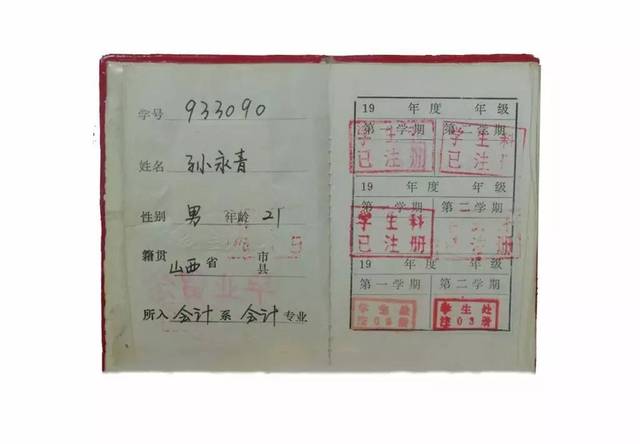 学号 933090
姓名 孙永青
性别 男 年龄 21
籍贯 山西省 市县
所入 会计 系 会计 专业
19 年度 年级
第一学期 第二学期
学生科 学生科
已注册 已注册
19 年度 年级
第一学期 第二学期
学生科
已注册 注
19 年度 年级
第一学期 第二学期
学生处 学生处
注 册 注03册